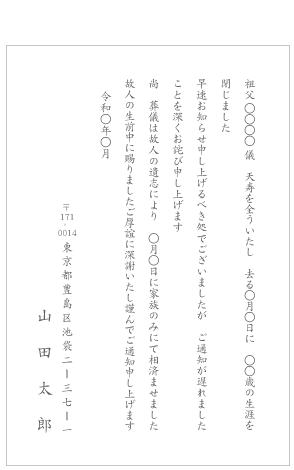 祖父 〇〇〇〇 儀 天寿を全ういたし 去る〇月〇日に 〇〇歳の生涯を
閉じました
早速お知らせ申し上げるべき処でございましたが ご通知が遅れました
ことを深くお詫び申し上げます
尚 葬儀は故人の遺志により 〇月〇日に家族のみにて相済ませました
故人の生前中に賜りましたご厚誼に深謝いたし謹んでご通知申し上げます
令和〇年〇月
〒171-0014 東京都豊島区池袋二ー三七ー一
山田太郎